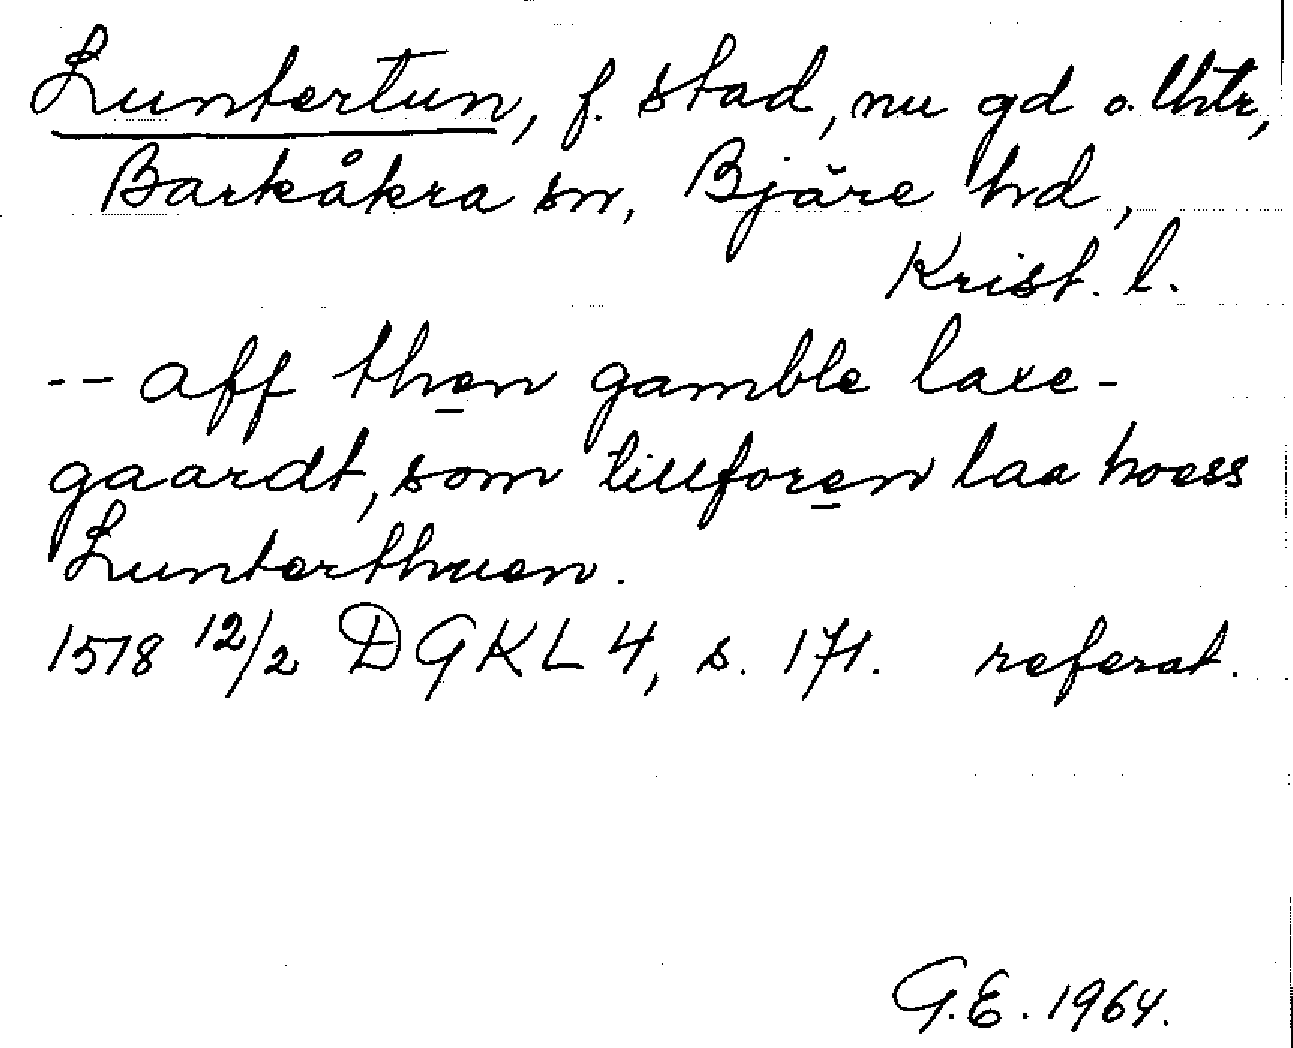 Luntertun, f. stad, nu gd o. lhtr,
Barkåkra sn, Bjäre hd,
Krist. l.
-- aff then gamble laxe-
gaardt, som tillforen laa hoess
Lunterthuen.
1578 12/2 DGKL 4, s. 171. referat.
G.E. 1964.